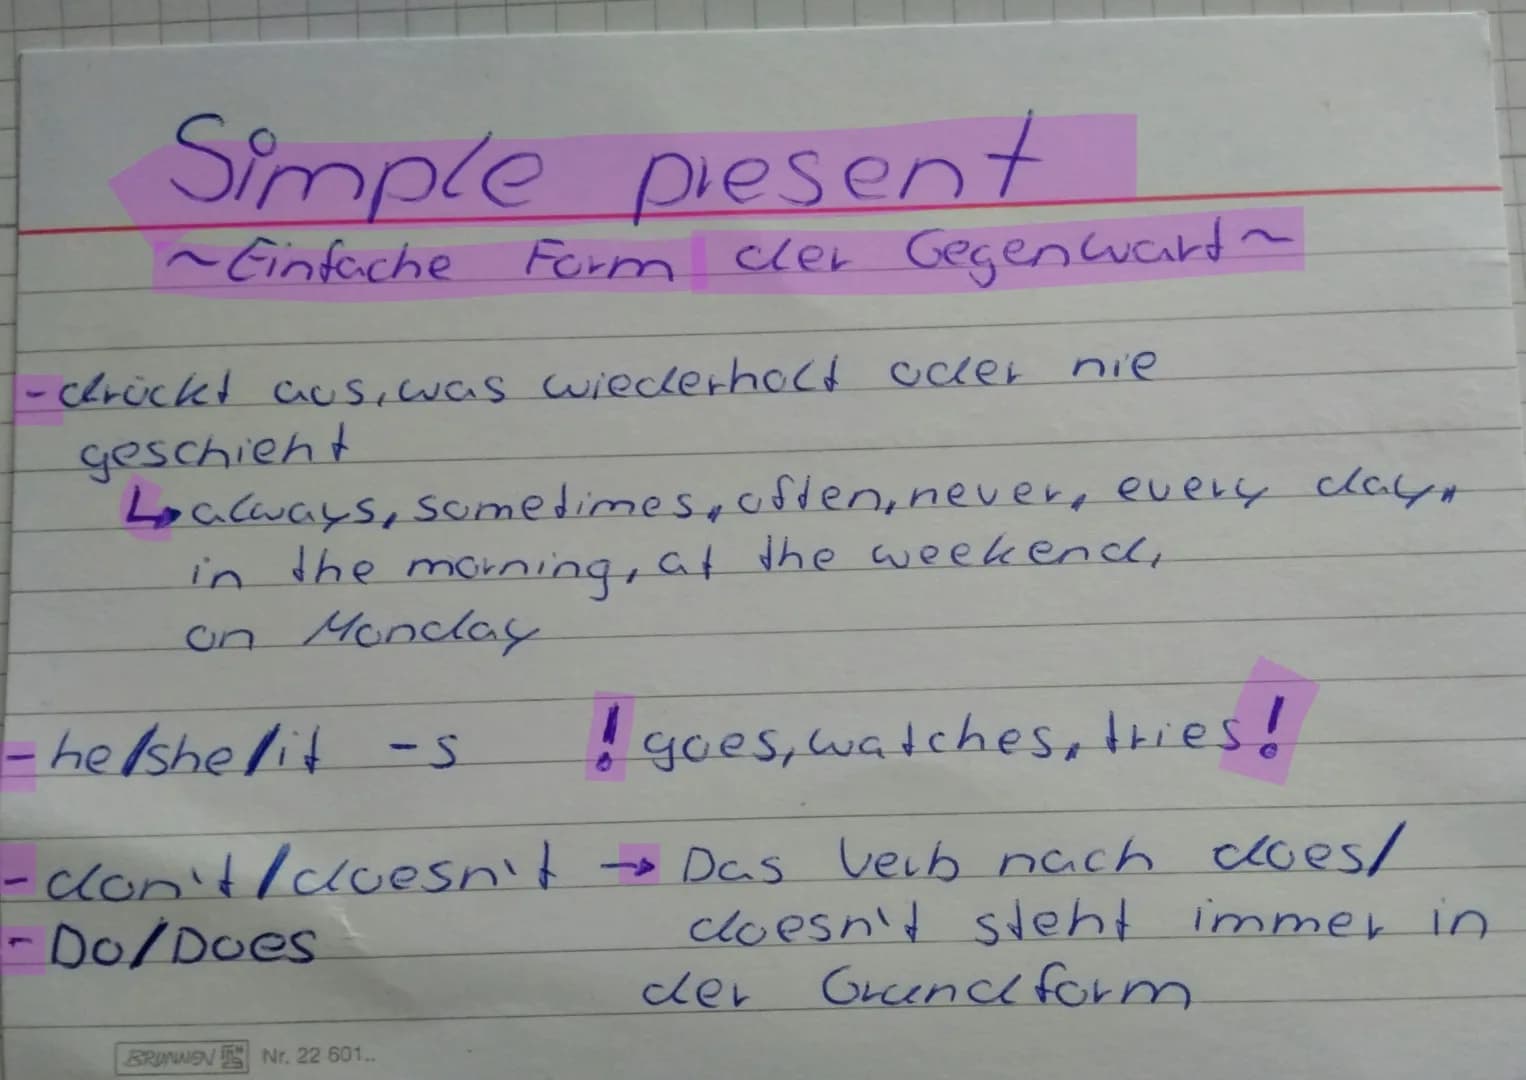 Simple present
~Einfache Form der Gegenwart~
-drückt aus, was wiederholt oder nie
geschieht
↳ always, sometimes, often, never, every day,
in the morning, at the weekend,
on Monday
-he/she/it -s ! goes, watches, tries!
-don't/doesn't → Das Verb nach does/
-Do/Does doesn't steht immer in
der Grundform
BRUNNEN Nr. 22 601..